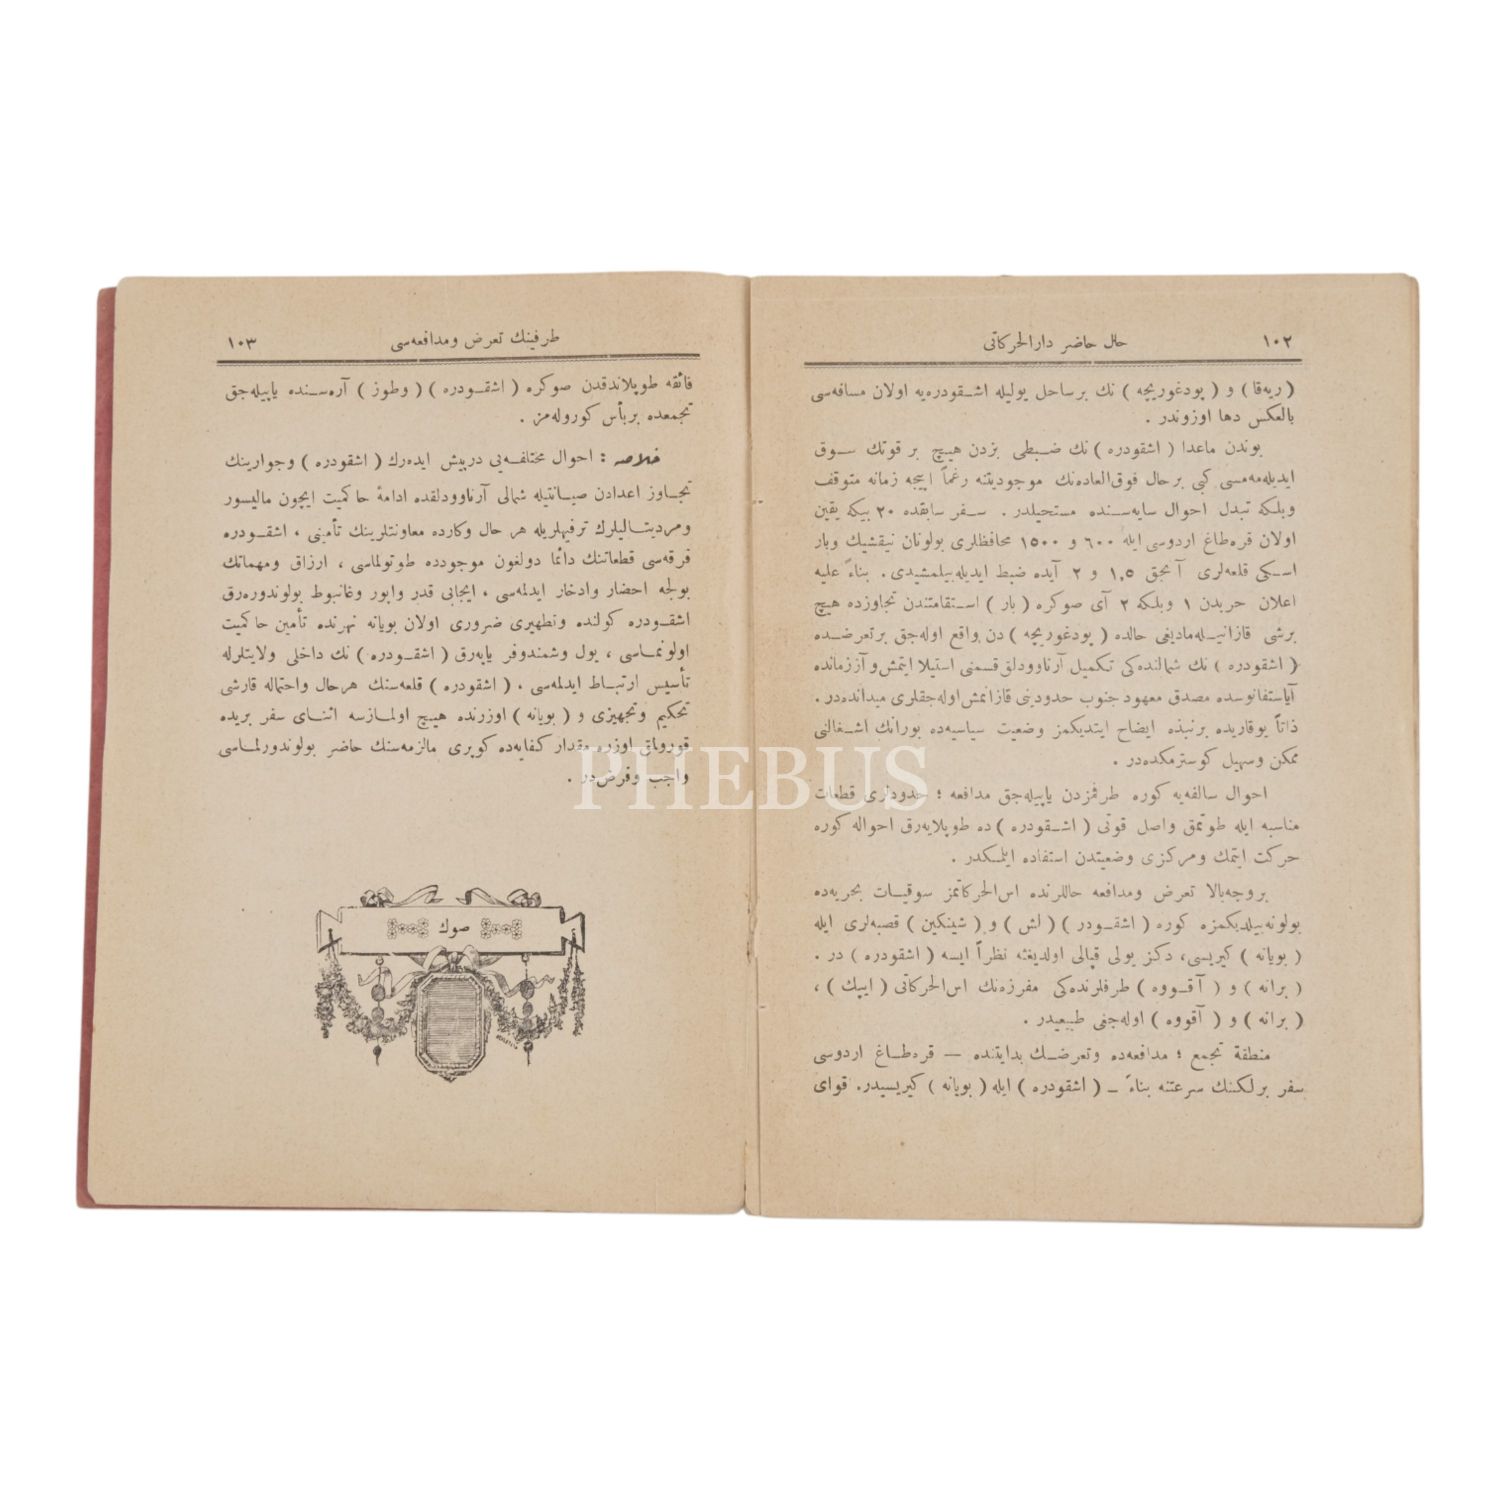 ١٠٢ حال حاضر دارالحركاتى
( ريه‌قا ) و ( پودغوريچه ) نك برساحل يوليله اشـقودره‌يه اولان مسافه‌سى
بالعكس دها اوزوندر .
بوندن ماعدا ( اشقودره ) نك ضـبطى بزدن هيـچ بر قوتك ســوق
ايديله‌مه‌مسى كبى برحال فوق‌العاده‌نك موجوديتنه رغماً اييجه زمانه متوقف
وبلـكه تبدل احوال سايه‌ســنده مستحيلدر . سـفر سابقده ٢٠ بيكه يقين
اولان قره‌طاغ اردوسى ايله ٦٠٠ و ١٥٠٠ محافظلرى بولونان نيقشيك وبار
اسـكى قلعه‌لرى آنجق ١,٥ و ٢ آيده ضبط ايديله‌بيلمشيدى . بناءً عليه
اعلان حربدن ١ وبلـكه ٢ آى صوكره ( بار ) اسـتقامتندن تجاوزده هيچ
برشى قازانيـله‌ماديغى حالده ( پودغوريچه ) دن واقع اوله‌جق برتعرضـده
( اشقودره ) نك شمالنده‌كى تـكميل آرناوودلق قسمنى استيلا ايتمش و آززمانده
آياستفانوسده مصدق معهود جنوب حدودينى قازانمش اوله‌جقلرى ميدانده‌در .
ذاتاً يوقاريده برنبذه ايضاح ايتديكمز وضعيت سياسيه‌ده بورانك اشـغالنى
ممكن وسهيل كوسترمكده‌در .
احوال سالفه‌يه كوره طرفمزدن ياپيله‌جق مدافعه ؛ حدودلرى قطعات
مناسبه ايله طوتمق واصل قوتى ( اشـقودره ) ده طوپلايه‌رق احواله كوره
حركت ايتمك ومركزى وضعيتدن استفاده ايلمـكدر .
بروجه‌بالا تعرض ومدافعه حاللرنده اس‌الحركاتمز سوقيـات بحريه‌ده
بولونه‌بيلديكمزه كوره ( اشقـودر ) ( لش ) و ( شينكين ) قصبه‌لرى ايله
( بويانه ) كيريسى، دكز يولى قپالى اولديغنه نظراً ايسه ( اشقودره ) در .
( برانه ) و ( آقـووه ) طرفلرنده‌كى مفرزه‌نك اس‌الحركاتى ( ايپك ) ،
( برانه ) و ( آقووه ) اوله‌جغى طبيعيدر .
منطقهٔ تجمع ؛ مدافعه‌ده وتعرضـك بدايتنده — قره‌طـاغ اردوسى
سفر برلكنك سرعتنه بناءً ــ ( اشقودره ) ايله ( بويانه ) كيريسيدر. قواى
طرفينك تعرض ومدافعه‌سى ١٠٣
فائقه طوپلاندقدن صوكره ( اشقـودره ) ( وطوز ) آره‌سـنده ياپيله‌جق
تجمعده بربأس كورولمز .
خلاصه : احوال مختلفه‌يى درپيش ايده‌رك ( اشقودره ) وجوارينك
تجـاوز اعدادن صيـانتيله شمالى آرناوودلقده ادامهٔ حاكميت ايچون ماليسور
ومرديتـاليلرك ترفيهلريله هر حال وكارده معاونتلرينك تأمينى ، اشقـودره
فرقه‌سى قطعاتنك دائما دولغون موجودده طوتولماسى ، ارزاق ومهماتك
بولجه احضار وادخار ايدلمه‌سى ، ايجابى قدر واپور وغانبوط بولوندوره‌رق
اشقـودره كولنده وتطهيرى ضرورى اولان بويانه نهرنده تأمين حاكميت
اولونمـاسى ، يول وشمندوفر ياپه‌رق ( اشقـودره ) نك داخلى ولايتلرله
تأسيس ارتبـاط ايدلمه‌سى ، ( اشقودره ) قلعه‌سنك هرحال واحتماله قارشى
تحكيم وتجهيزى و ( بويانه ) اوزرنده هيـچ اولمـازسه اثنـاى سفر بريده
قورولمق اوزره مقدار كفايه‌ده كوپرى مالزمه‌سنك حاضر بولوندورلماسى
واجب وفرض‌در .
صوك
PHEBUS